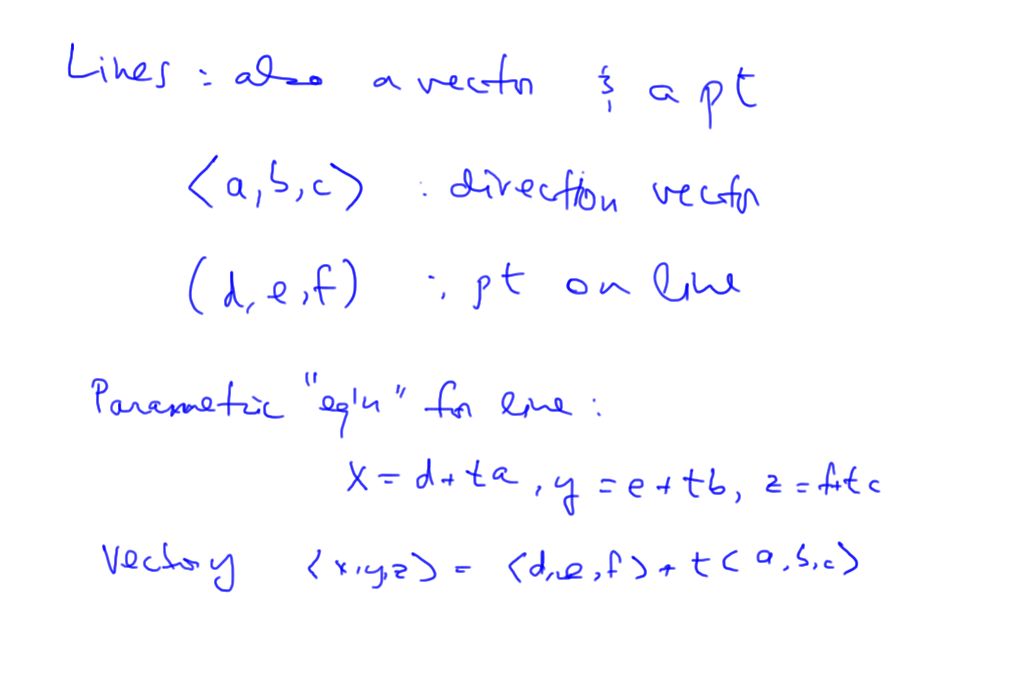 Lines : also a vector & a pt
<a,b,c> : direction vector
(d,e,f) : pt on line
Parametric "eq'n" for line :
x = d+ta, y = e+tb, z = f+tc
Vectory <x,y,z> = <d,e,f> + t<a,b,c>